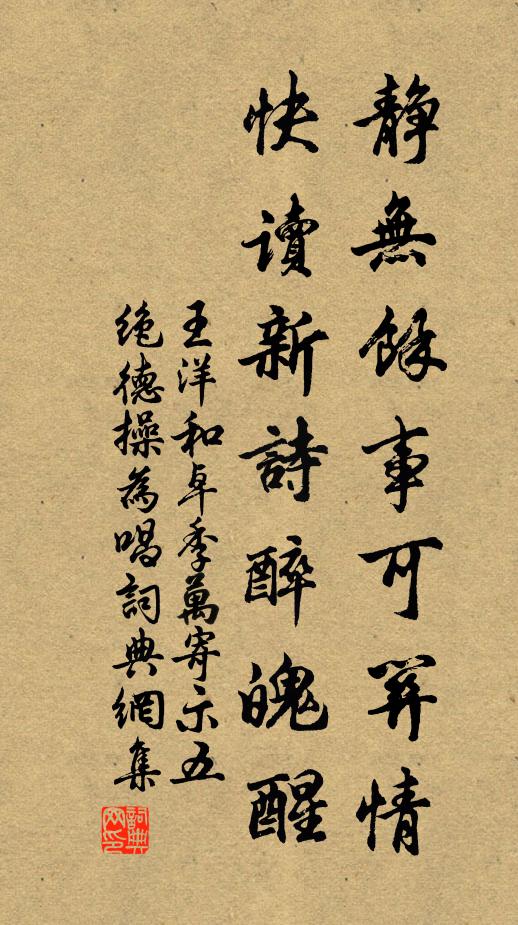 靜無餘事可關情
快讀新詩醉魄醒
王洋和卓季萬寄示五
絶德操為唱詞典網集
詞典网印